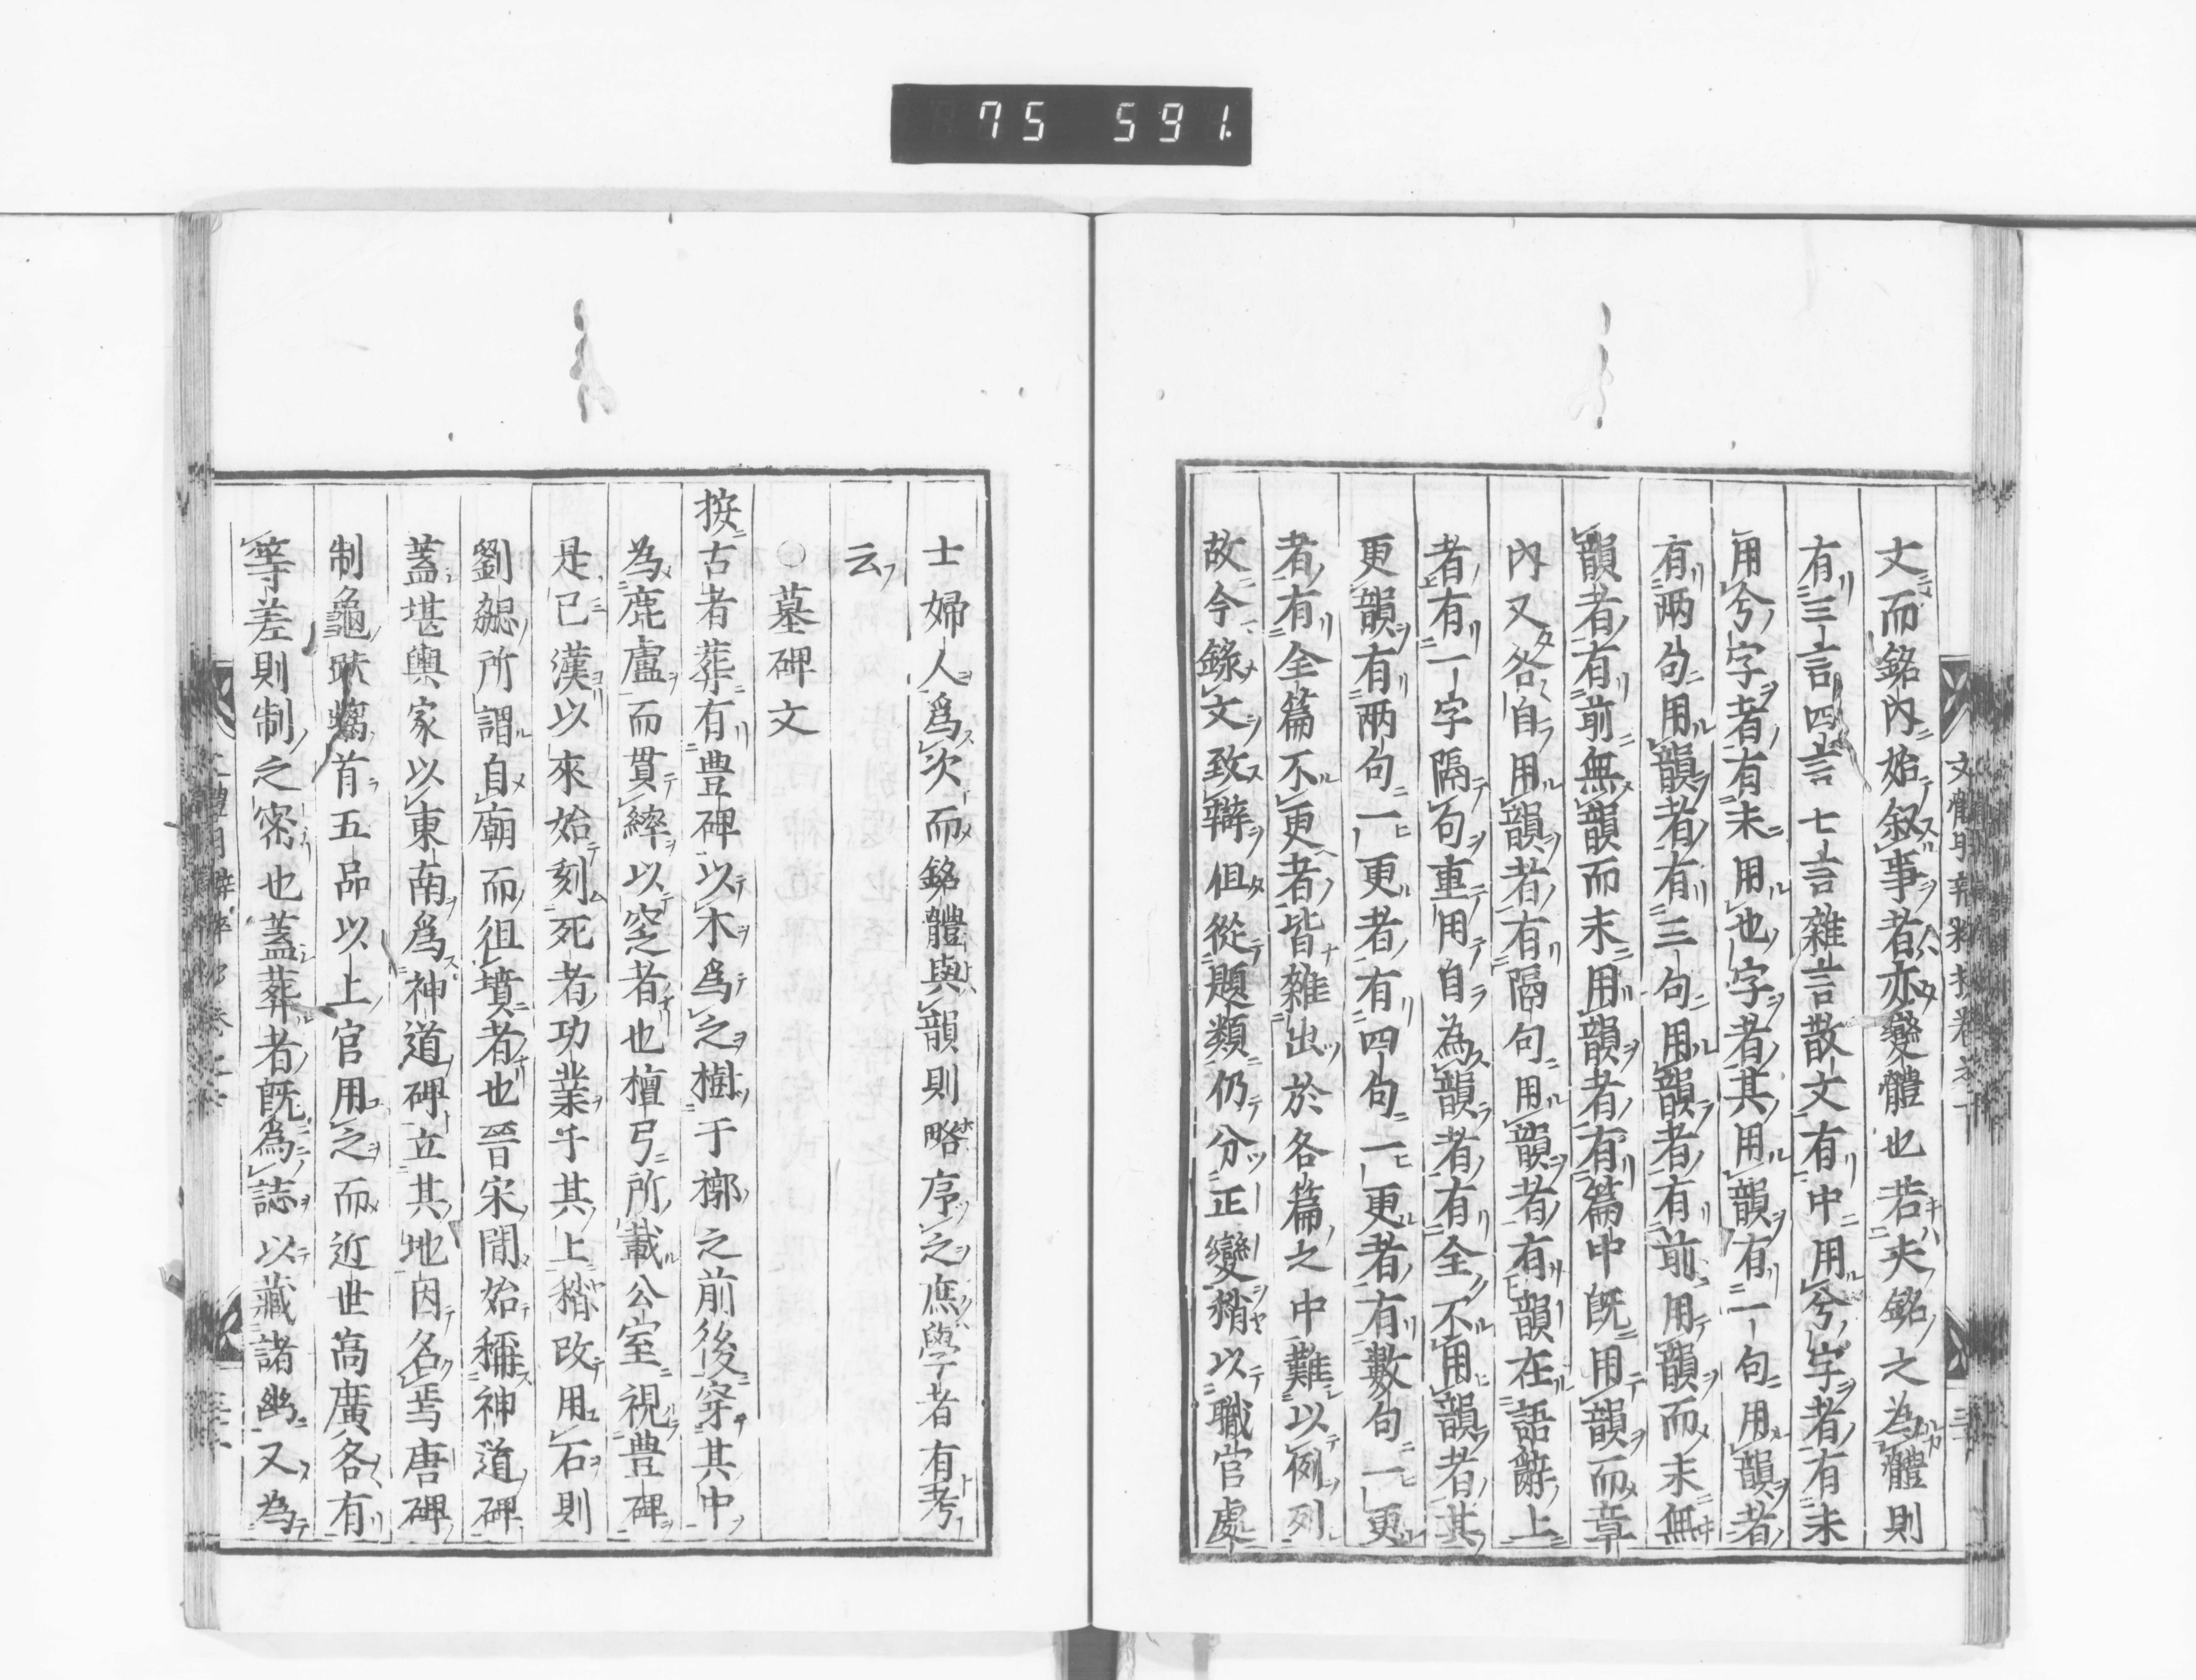 75 591
文而銘內始叙事者亦變體也若夫銘之為體則
有三言四言七言雜言散文有中用兮字者有末
用兮字者有末用也字者其用韻有一句用韻者
有兩句用韻者有三句用韻者有前用韻而末無
韻者有前無韻而末用韻者有篇中既用韻而章
內又各自用韻者有隔句用韻者有韻在語辭上
者有一字隔句重用自為韻者有全不用韻者其
更韻有兩句一更者有四句一更者有數句一更
者有全篇不更者皆雜出於各篇之中難以例列
故今錄文致辯但從題類仍分正變稍以職官處
士婦人為次而銘體與韻則略序之庶學者有考
云
○墓碑文
按古者葬有豊碑以木為之樹于槨之前後穿其中
為鹿盧而貫繂以窆者也檀弓所載公室視豊碑
是已漢以來始刻死者功業于其上稍改用石則
劉勰所謂自廟而徂墳者也晉宋間始稱神道碑
蓋堪輿家以東南為神道碑立其地因名焉唐碑
制龜趺螭首五品以上官用之而近世高廣各有
等差則制之密也蓋葬者既為誌以藏諸幽又為